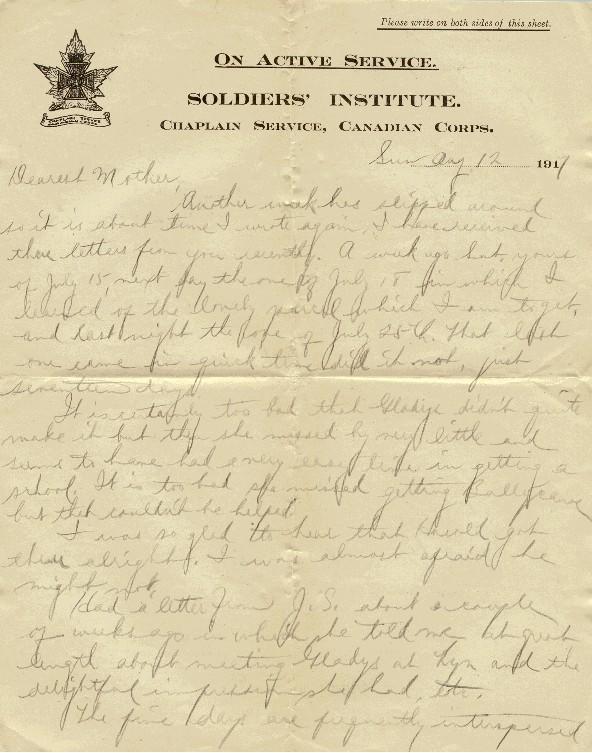 Please write on both sides of this sheet.
ON ACTIVE SERVICE.
SOLDIERS' INSTITUTE.
CHAPLAIN SERVICE, CANADIAN CORPS.
Sun Aug 12 1917
Dearest Mother,
Another week has slipped around
so it is about time I wrote again. I have received
three letters from you recently. A week ago yours
of July 15, next day the one of July 18 in which I
learned of the lovely parcel which I am to get,
and last night the one of July 25th. That last
one came in quick time did it not, just
seventeen days.
It is certainly too bad that Gladys didn't quite
make it but then she missed by very little and
seems to have had a very easy time in getting a
school. It is too bad she missed getting Ballycanoe
but that couldn't be helped.
I was so glad to hear that got
thru alright. I was almost afraid he
might not.
Had a letter from J.S. about a couple
of weeks ago in which she told me at great
length about meeting Gladys at Lyn and the
delightful impression she had, etc.
The fine days are frequently interspersed